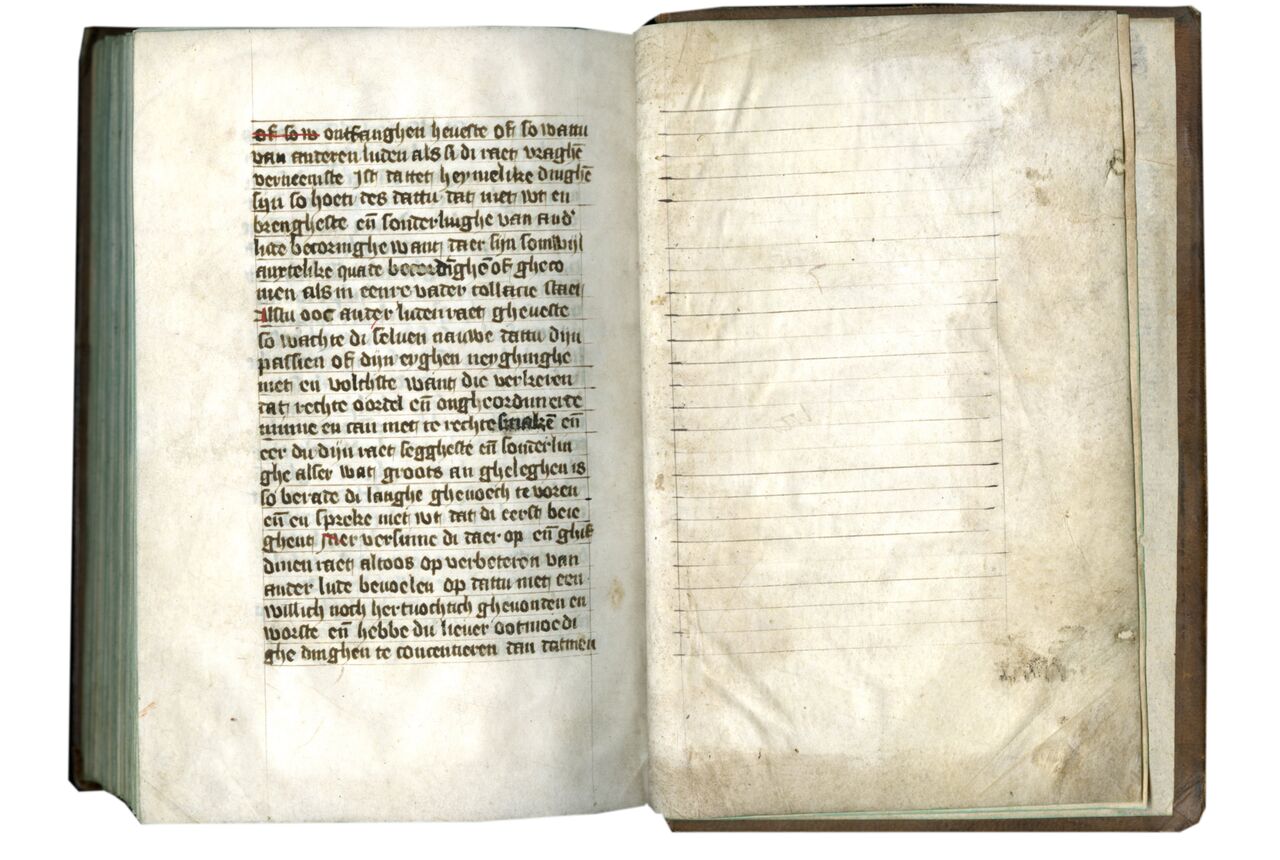 of so w ontfanghen heueste of so wattu
van anderen luden als si di raet vraghē
verneemste Ist dattet heymelike dinghē
sijn so hoett des dattu dat niet wt en
brengheste eñ sonderlinghe van and'
lude becoringhe want daer sijn somwijl
anxtelike quade becordīghē of gheco
men als in eenre vader collacie staet
Alstu ooc ander luden raet gheueste
so wachte di seluen nauwe dattu dijn
passien of dijn eyghen neyghinghe
niet en volchste want die verkeren
dat rechte oordel eñ ongheordineerde
minne en can niet te rechte smakē eñ
eer du dijn raet seggheste eñ sonderlin
ghe alser wat groots an gheleghen is
so berade di langhe ghenoech te voren
eñ en spreke niet wt dat di eerst beie
ghent mer versinne di daer op eñ
dinen raet altoos op verbeteren van
ander lude beuoelen op dattu niet een
willich noch hertnochtich gheuonden en
worste eñ hebbe du lieuer ootmoedi
ghe dinghen te concentieren dan datmen